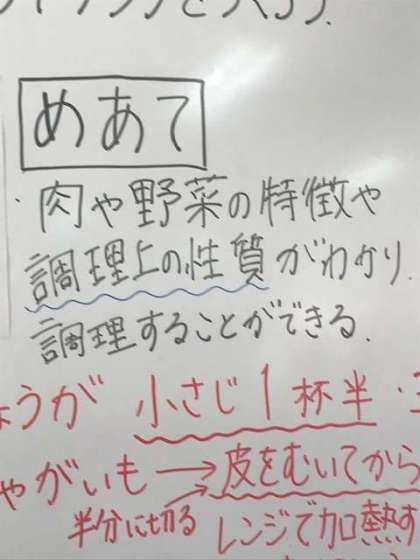 をつくろう.
めあて
・肉や野菜の特徴や
調理上の性質がわかり.
調理することができる.
ょうが 小さじ1杯半・
ゃがいも→皮をむいてから
半分に切る レンジで加熱す